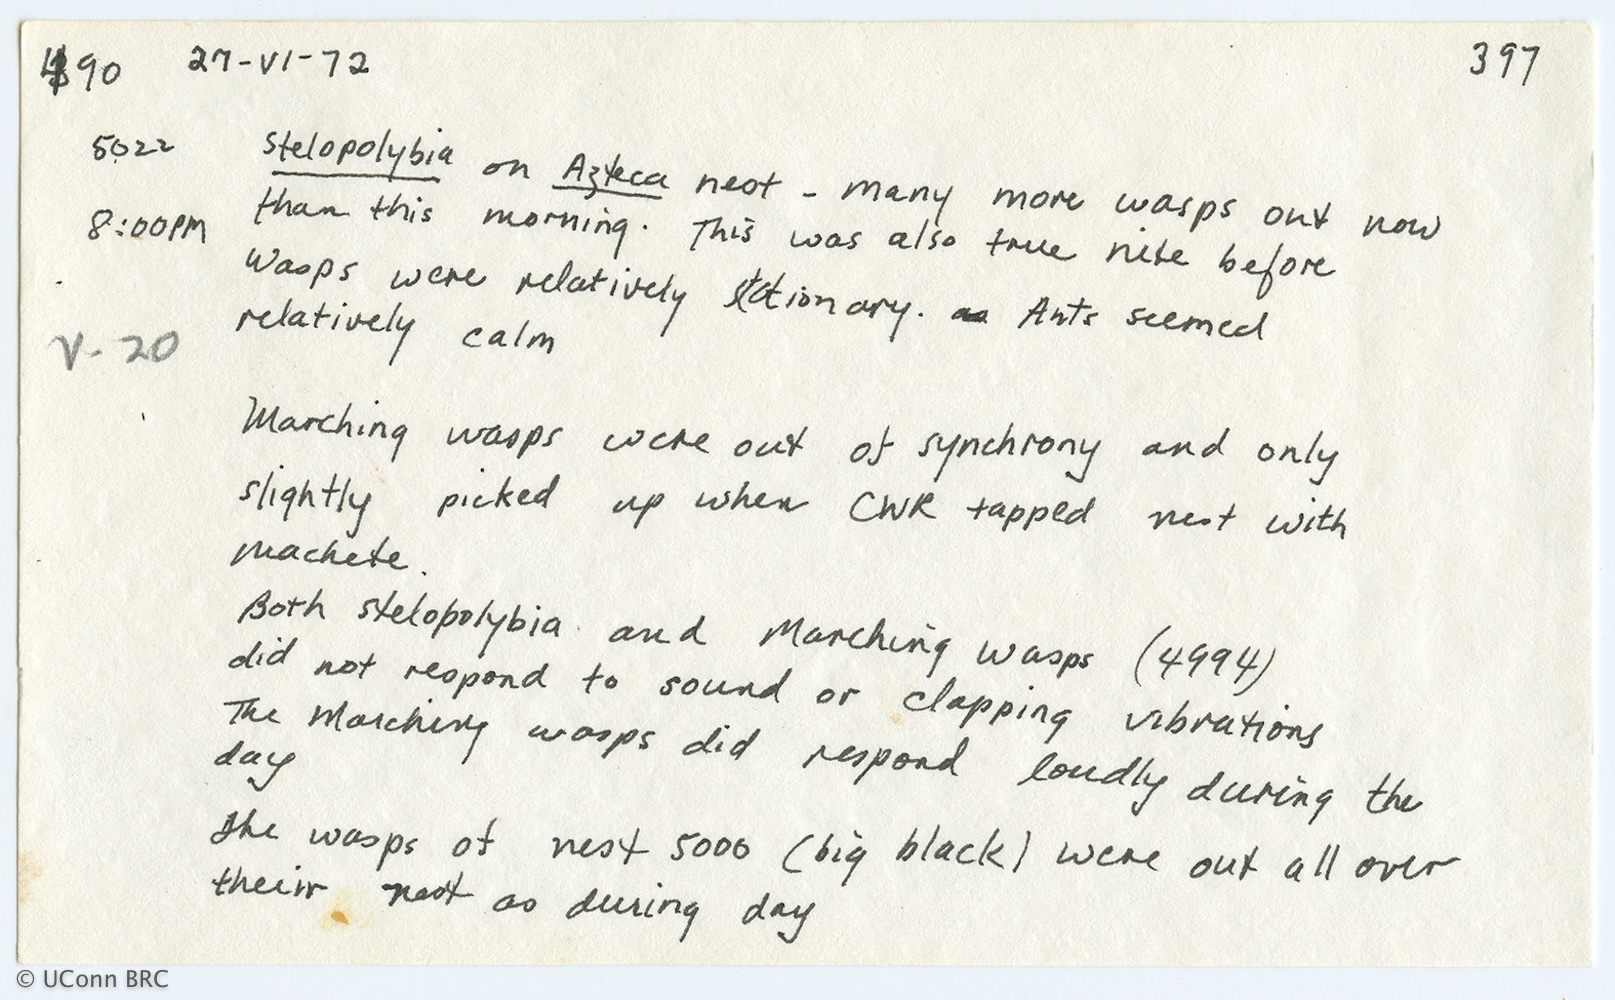 490 27-VI-72 397
5022 Stelopolybia on Azteca nest - many more wasps out now
8:00PM than this morning. This was also true nite before
Wasps were relatively stationary. Ants seemed
relatively calm
V-20
Marching wasps were out of synchrony and only
slightly picked up when CWR tapped nest with
machete.
Both stelopolybia and Marching wasps (4994)
did not respond to sound or clapping vibrations
The Marching wasps did respond loudly during the
day
The wasps of nest 5000 (big black) were out all over
their nest as during day
© UConn BRC